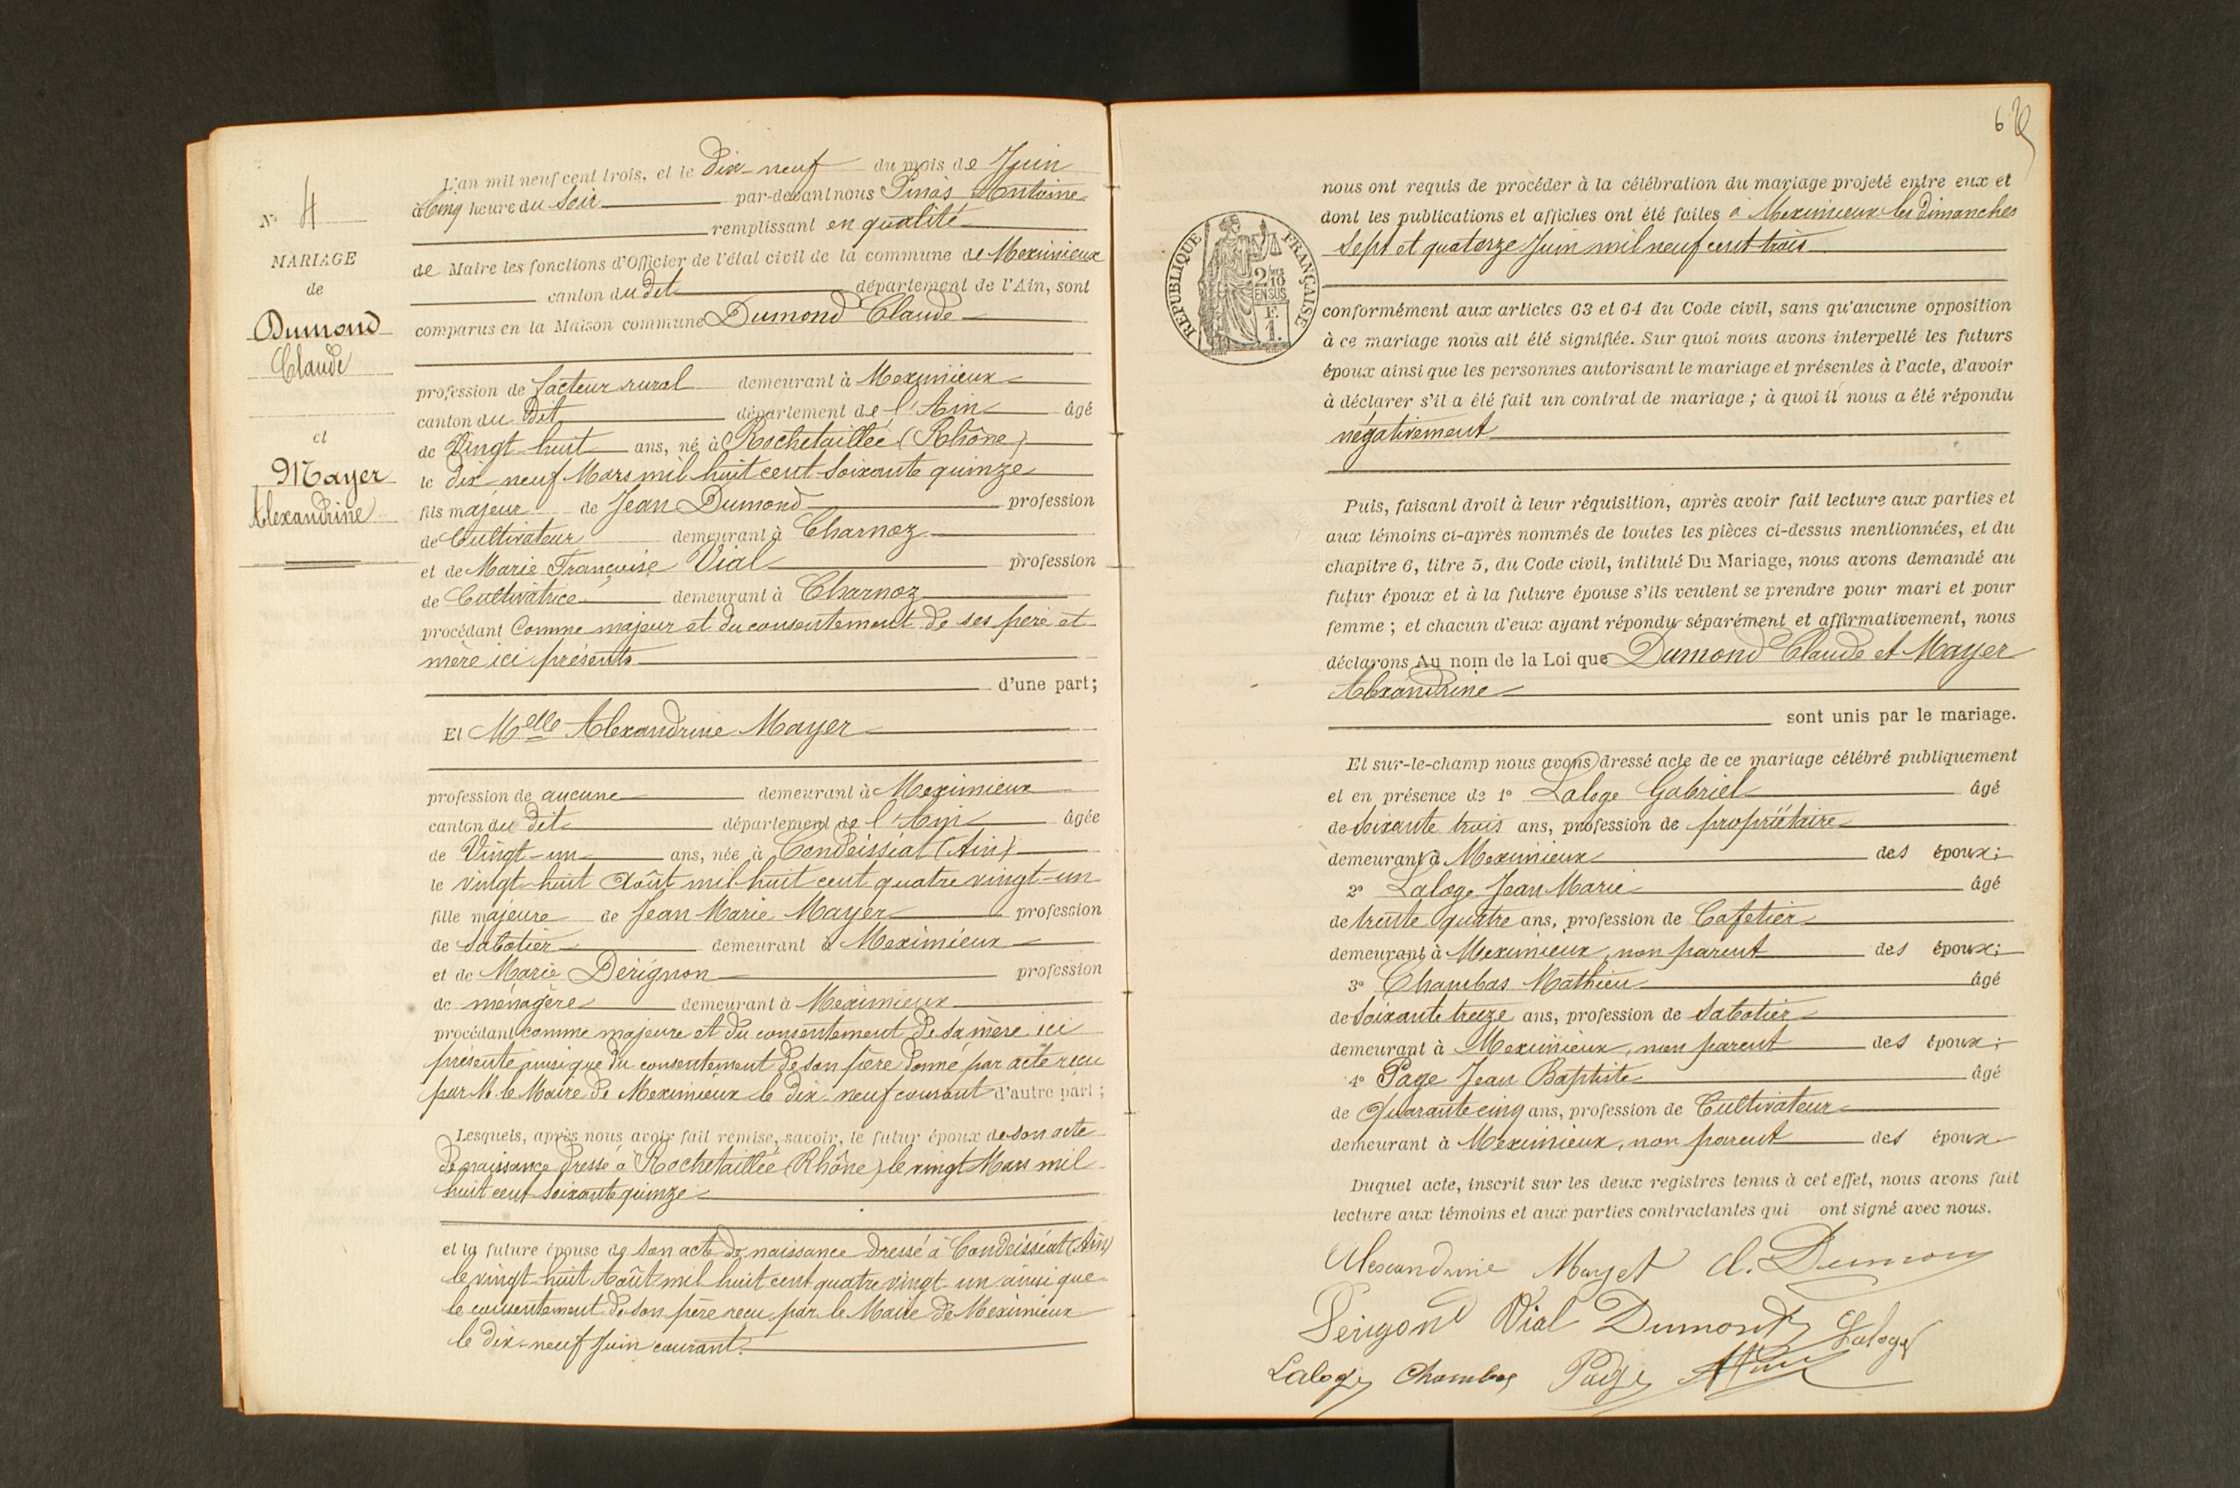 N° 4
MARIAGE
de
Dumond
Claude
et
Mayer
Alexandrine
L'an mil neuf cent trois, et le dix-neuf du mois de Juin
à Cinq heure du Soir par-devant nous Pinas Antoine
remplissant en qualité
de Maire les fonctions d'Officier de l'état civil de la commune de Meximieux
canton du dit département de l'Ain, sont
comparus en la Maison commune Dumond Claude
profession de facteur rural demeurant à Meximieux
canton du Dit département de l'Ain âgé
de Vingt-huit ans, né à Rochetaillée (Rhône)
le dix-neuf Mars mil huit cent soixante quinze
fils majeur de Jean Dumond profession
de Cultivateur demeurant à Charnoz
et de Marie Françoise Vial profession
de Cultivatrice demeurant à Charnoz
procédant Comme majeur et du consentement de ses père et
mère ici présents
d'une part;
Et Melle Alexandrine Mayer
profession de aucune demeurant à Meximieux
canton du dit département de l'Ain âgée
de Vingt-un ans, née à Condeissiat (Ain)
le vingt-huit Août mil huit cent quatre vingt-un
fille majeure de Jean Marie Mayer profession
de Sabotier demeurant à Meximieux
et de Marie Dérignon profession
de ménagère demeurant à Meximieux
procédant comme majeure et du consentement de sa mère ici
présente ainsi que du consentement de son père donné par acte reçu
par M. le Maire de Meximieux le dix-neuf courant d'autre part;
Lesquels, après nous avoir fait remise, savoir, le futur époux de son acte
de naissance dressé à Rochetaillée (Rhône) le vingt Mars mil
huit cent soixante quinze
et la future épouse de son acte de naissance dressé à Condeisséat (Ain)
le vingt-huit Août mil huit cent quatre vingt un ainsi que
le consentement de son père reçu par le Maire de Meximieux
le dix-neuf Juin courant.
6
RÉPUBLIQUE FRANÇAISE
2/10
EN SUS
F.
1.
nous ont requis de procéder à la célébration du mariage projeté entre eux et
dont les publications et affiches ont été faites à Meximieux les dimanches
Sept et quatorze Juin mil neuf cent trois
conformément aux articles 63 et 64 du Code civil, sans qu'aucune opposition
à ce mariage nous ait été signifiée. Sur quoi nous avons interpellé les futurs
époux ainsi que les personnes autorisant le mariage et présentes à l'acte, d'avoir
à déclarer s'il a été fait un contrat de mariage; à quoi il nous a été répondu
négativement
Puis, faisant droit à leur réquisition, après avoir fait lecture aux parties et
aux témoins ci-après nommés de toutes les pièces ci-dessus mentionnées, et du
chapitre 6, titre 5, du Code civil, intitulé Du Mariage, nous avons demandé au
futur époux et à la future épouse s'ils veulent se prendre pour mari et pour
femme; et chacun d'eux ayant répondu séparément et affirmativement, nous
déclarons Au nom de la Loi que Dumond Claude et Mayer
Alexandrine
sont unis par le mariage.
Et sur-le-champ nous avons dressé acte de ce mariage célébré publiquement
et en présence de 1° Laloge Gabriel âgé
de soixante trois ans, profession de propriétaire
demeurant à Meximieux des époux;
2° Laloge Jean Marie âgé
de trente quatre ans, profession de Cafetier
demeurant à Meximieux, non parent des époux;
3° Chambas Mathieu âgé
de soixante treize ans, profession de Sabotier
demeurant à Meximieux, non parent des époux;
4° Page Jean Baptiste âgé
de Quarante cinq ans, profession de Cultivateur
demeurant à Meximieux, non parent des époux
Duquel acte, inscrit sur les deux registres tenus à cet effet, nous avons fait
lecture aux témoins et aux parties contractantes qui ont signé avec nous.
Alexandrine Mayet C. Dumon
Perigond Vial Dumond Laloge
Laloge Chambas Page